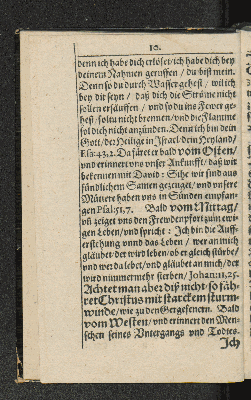 10.
denn ich habe dich erlöset/ ich habe dich bey
deinem Nahmen geruffen / du bist mein.
Denn so du durch Wasser gehest / wil ich
bey dir seyn / daß dich die Ströme nicht
sollen ersäuffen / und so du ins Fewer ge-
hest / soltu nicht brennen/ und die Flamme
sol dich nicht anzünden. Denn ich bin dein
Gott/ der Heilige in Israel/ dein Heyland/
Esa: 43,2. Da füret er bald vom Osten/
und erinnert uns unser Ankunfft/ daß wir
bekennen mit David: Sihe wir sind aus
sündlichem Samen gezeuget/ und unsere
Mütter haben uns in Sünden empfan-
gen Psal: 51,7. Bald vom Mittag/
uñ zeiget uns den Frewdenpfort zum ewi-
gen Leben/ und spricht: Ich bin die Auff-
erstehung unnd das Leben / wer an mich
gläubet/ der wird leben/ ob er gleich stürbe/
und wer da lebet/ und gläubet an mich/ der
wird nimmermehr sterben/ Johan: 11,25.
Achtet man aber diß nicht/ so fäh-
ret Christus mit starckem sturm-
winde/ wie zu den Gergesenern. Bald
vom Westen/ und erinnert den Men-
schen seines Untergangs und Todtes.
Ich